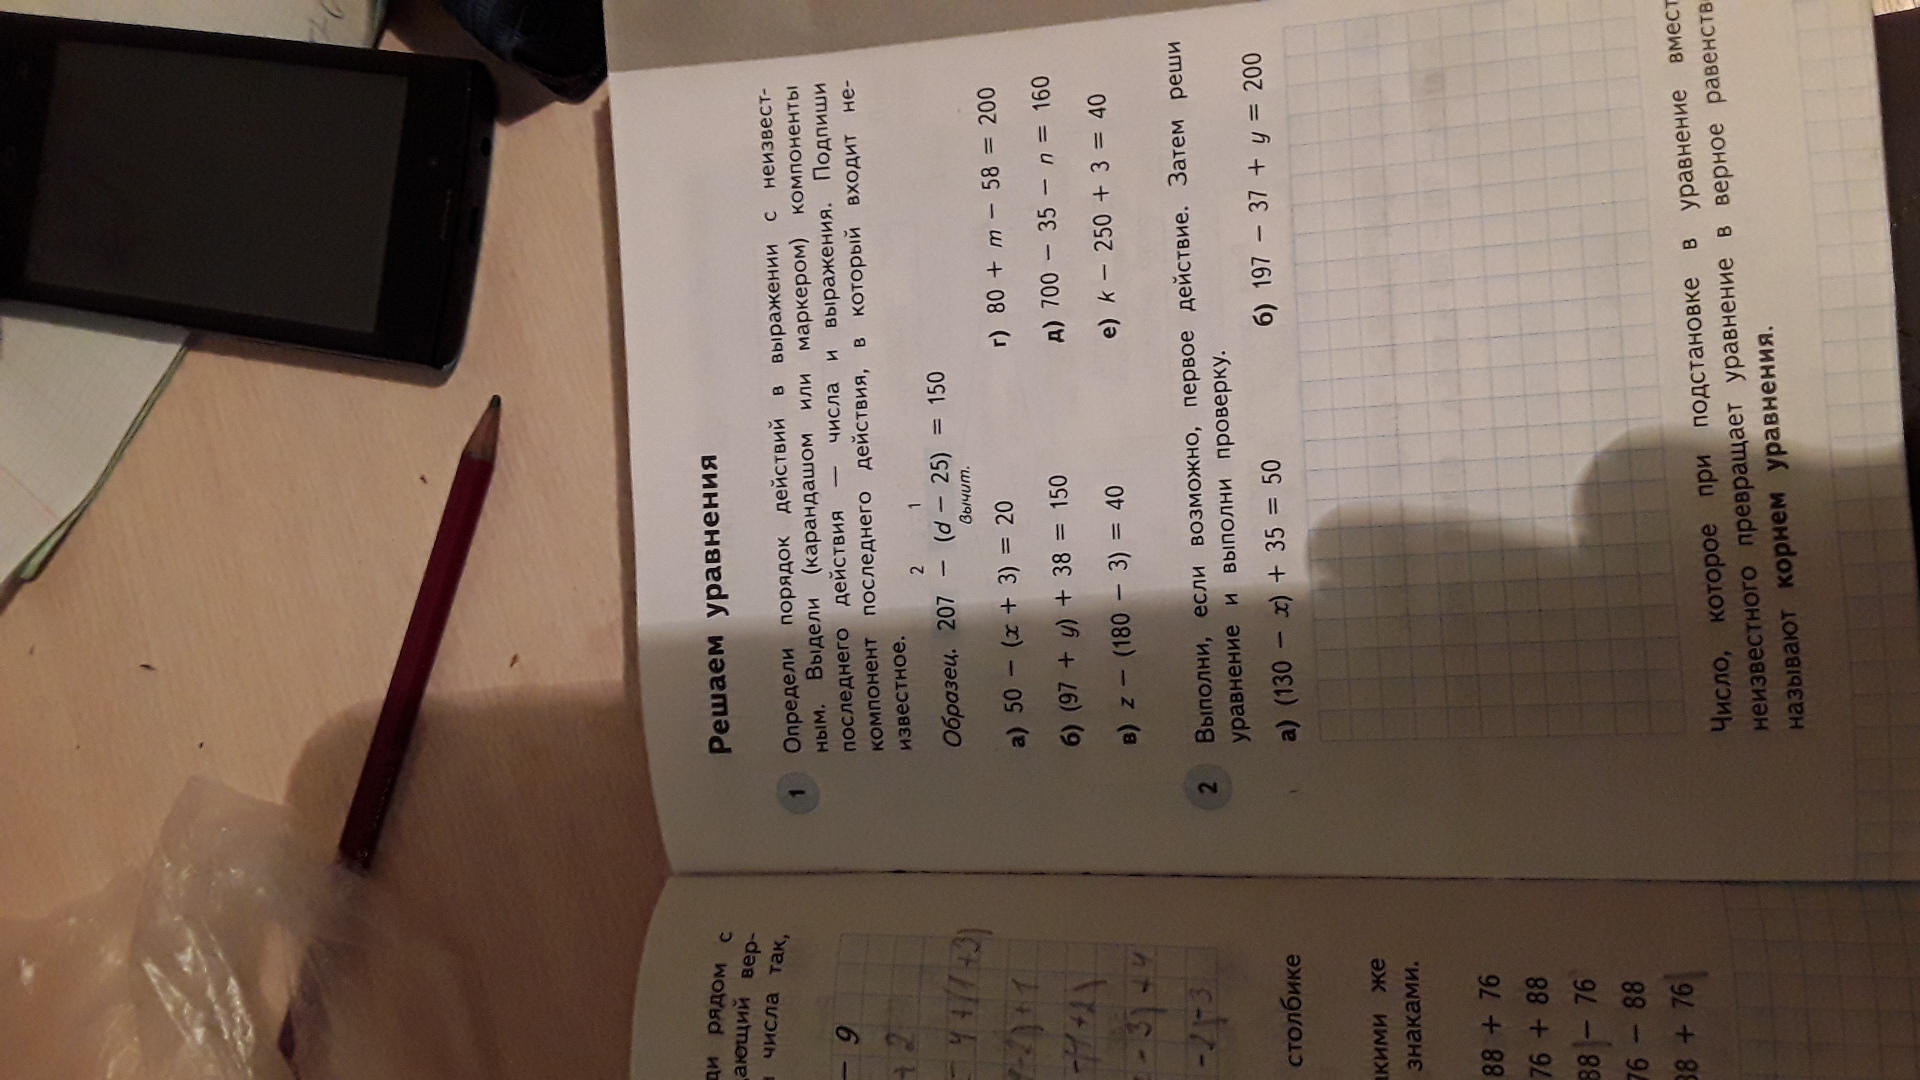 Решаем уравнения
1 Определи порядок действий в выражении с неизвест-
ным. Выдели (карандашом или маркером) компоненты
последнего действия — числа и выражения. Подпиши
компонент последнего действия, в который входит не-
известное.
2 1
Образец. 207 − (d − 25) = 150
Вычит.
а) 50 − (x + 3) = 20
г) 80 + m − 58 = 200
б) (97 + y) + 38 = 150
д) 700 − 35 − n = 160
в) z − (180 − 3) = 40
е) k − 250 + 3 = 40
2 Выполни, если возможно, первое действие. Затем реши
уравнение и выполни проверку.
а) (130 − x) + 35 = 50
б) 197 − 37 + y = 200
Число, которое при подстановке в уравнение вмест
неизвестного превращает уравнение в верное равенств
называют корнем уравнения.
ди рядом с
дающий вер-
числа так,
− 9
+ 2
− 4 + (1 + 3)
− 2) + 1
− (4 + 2)
− 3) + 4
− 2) − 3
столбике
акими же
знаками.
88 + 76
76 + 88
88) − 76
76 − 88
88 + 76)